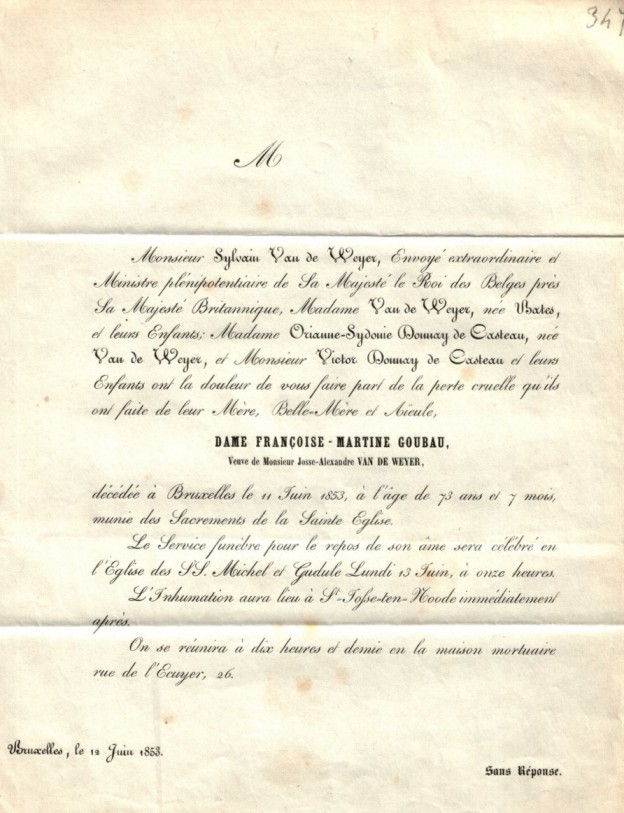 347
M
Monsieur Sylvain Van de Weyer, Envoyé extraordinaire et
Ministre plénipotentiaire de Sa Majesté le Roi des Belges près
Sa Majesté Britannique, Madame Van de Weyer, née Bates,
et leurs Enfants; Madame Orianne-Sydonie Donnay de Casteau, née
Van de Weyer, et Monsieur Victor Donnay de Casteau et leurs
Enfants ont la douleur de vous faire part de la perte cruelle qu'ils
ont faite de leur Mère, Belle-Mère et Aïeule,
DAME FRANÇOISE - MARTINE GOUBAU,
Veuve de Monsieur Josse-Alexandre VAN DE WEYER,
décédée à Bruxelles le 11 Juin 1853, à l'âge de 73 ans et 7 mois,
munie des Sacrements de la Sainte Eglise.
Le Service funèbre pour le repos de son âme sera célébré en
l'Eglise des SS. Michel et Gudule Lundi 13 Juin, à onze heures.
L'Inhumation aura lieu à St-Josse-ten-Noode immédiatement
après.
On se réunira à dix heures et demie en la maison mortuaire
rue de l'Ecuyer, 26.
Bruxelles, le 12 Juin 1853.
Sans Réponse.